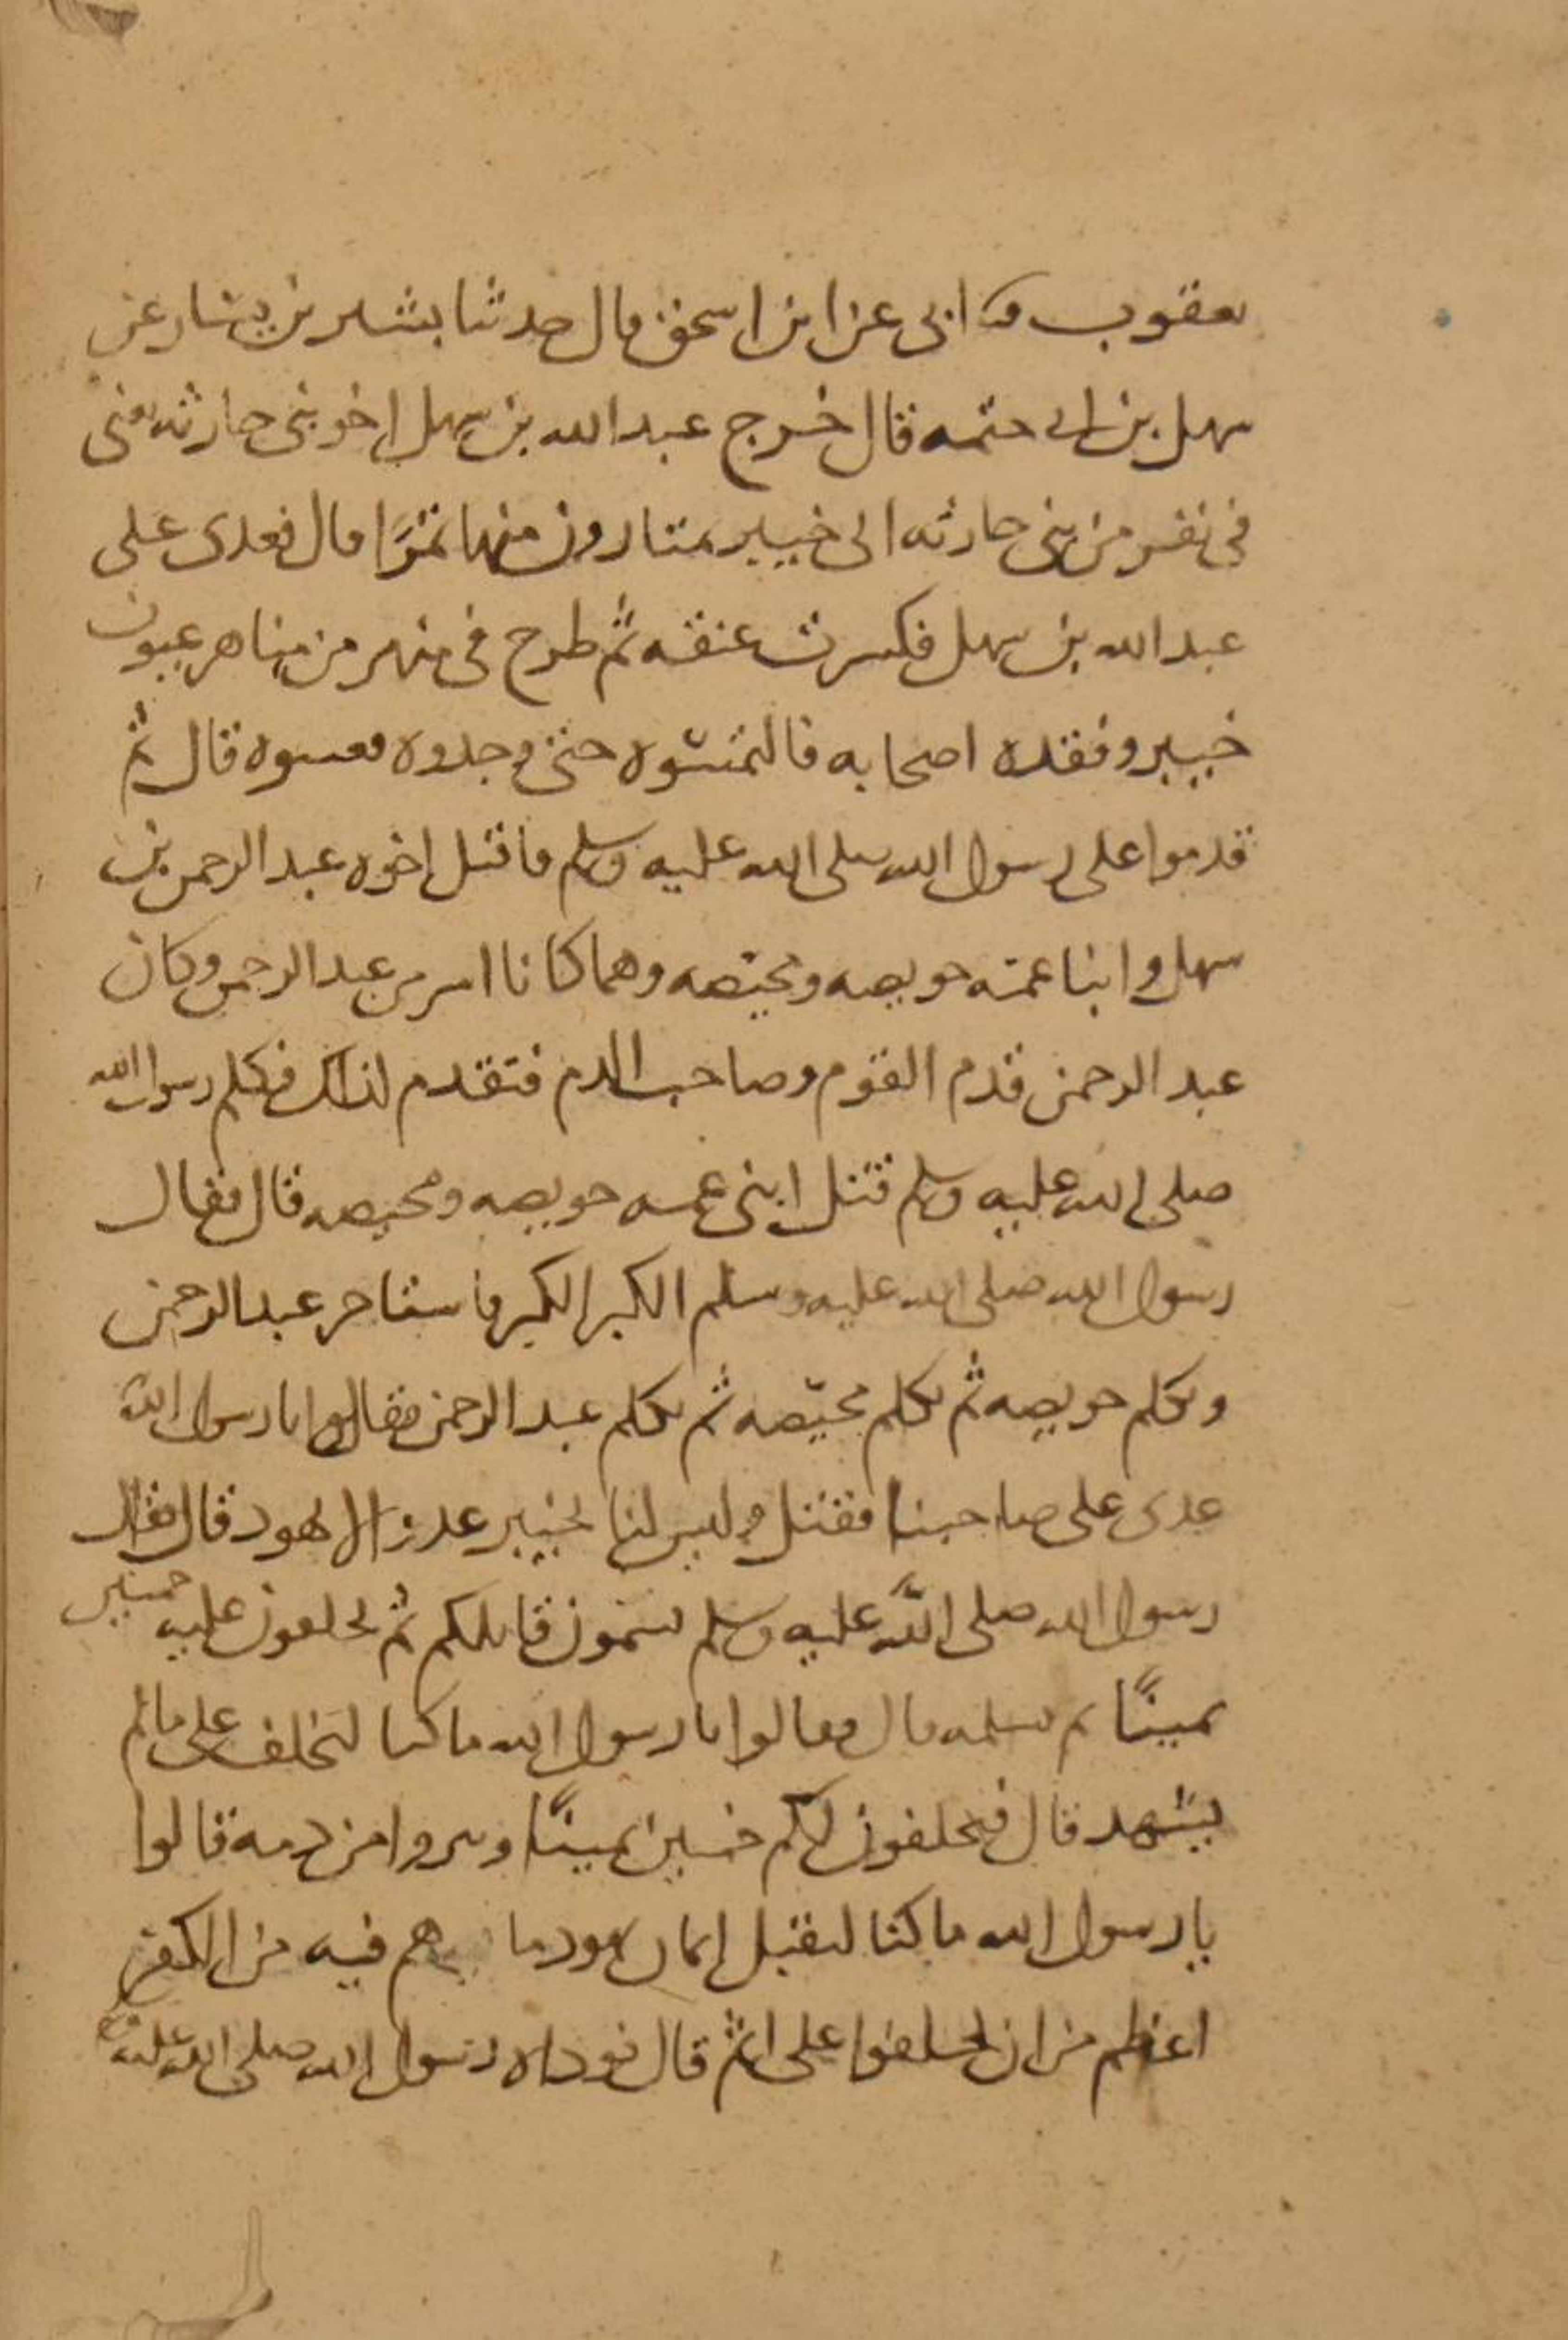 يعقوب ثنا ابى عن ابن اسحق قال حدثنا بشير بن يشار عن
سهل بن ابى حثمه قال خرج عبد الله بن سهل اخو بنى حارثه يعنى
فى نفر من بنى حارثه الى خيبر يمتارون منها تمرًا قال فعدى على
عبد الله بن سهل فكسرت عنقه ثم طرح فى منهر من مناهر عيون
خيبر وفقده اصحابه فالتمسوه حتى وجدوه فغيبوه قال ثم
قدموا على رسول الله صلى الله عليه وسلم فاقبل اخوه عبد الرحمن بن
سهل وابنا عمه حويصه ومحيصه وهما كانا اسن من عبد الرحمن وكان
عبد الرحمن قدم القوم وصاحب الدم فتقدم لذلك فكلم رسول الله
صلى الله عليه وسلم قبل ابنى عمه حويصه ومحيصه قال فقال
رسول الله صلى الله عليه وسلم الكبر الكبر فاستاخر عبد الرحمن
وتكلم حويصه ثم تكلم محيّصه ثم تكلم عبد الرحمن فقالوا يا رسول الله
عدى على صاحبنا فقتل وليس لنا بخيبر عدو الا يهود قال فقال
رسول الله صلى الله عليه وسلم تسمون قاتلكم ثم تحلفون عليه خمسين
يمينًا ثم نسلمه قال فقالوا يا رسول الله ما كنا لنحلف على ما لم
يشهد قال فيحلفون لكم خمسين يمينًا ويبروا من دمه قالوا
يا رسول الله ما كنا لنقبل ايمان يهود ما هم فيه من الكفر
اعظم من ان يحلفوا على اثم قال فوداه رسول الله صلى الله عليه